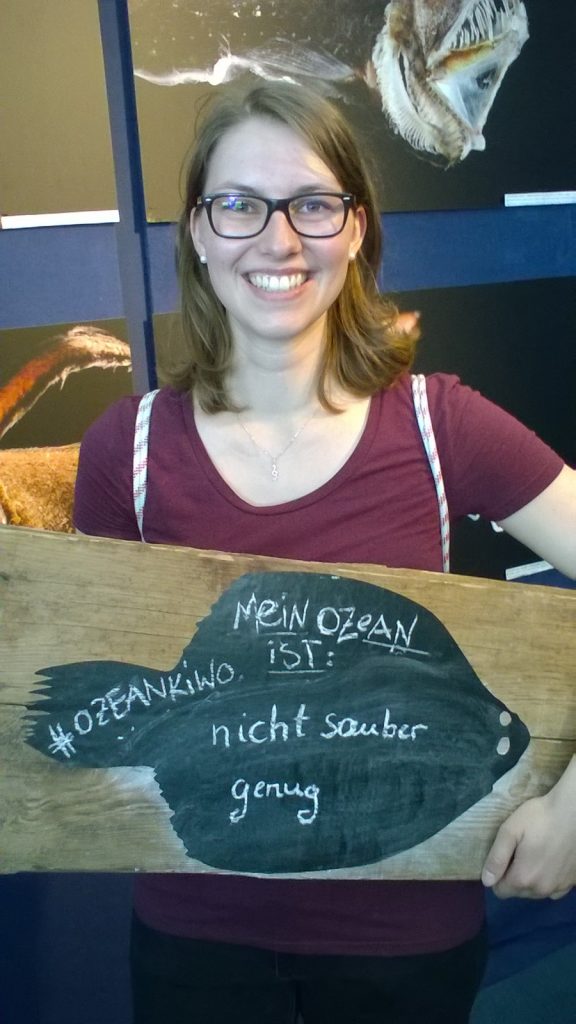 MEiN OZeAN
iST:
#OZEANKiWO.
nicht sauber
genug